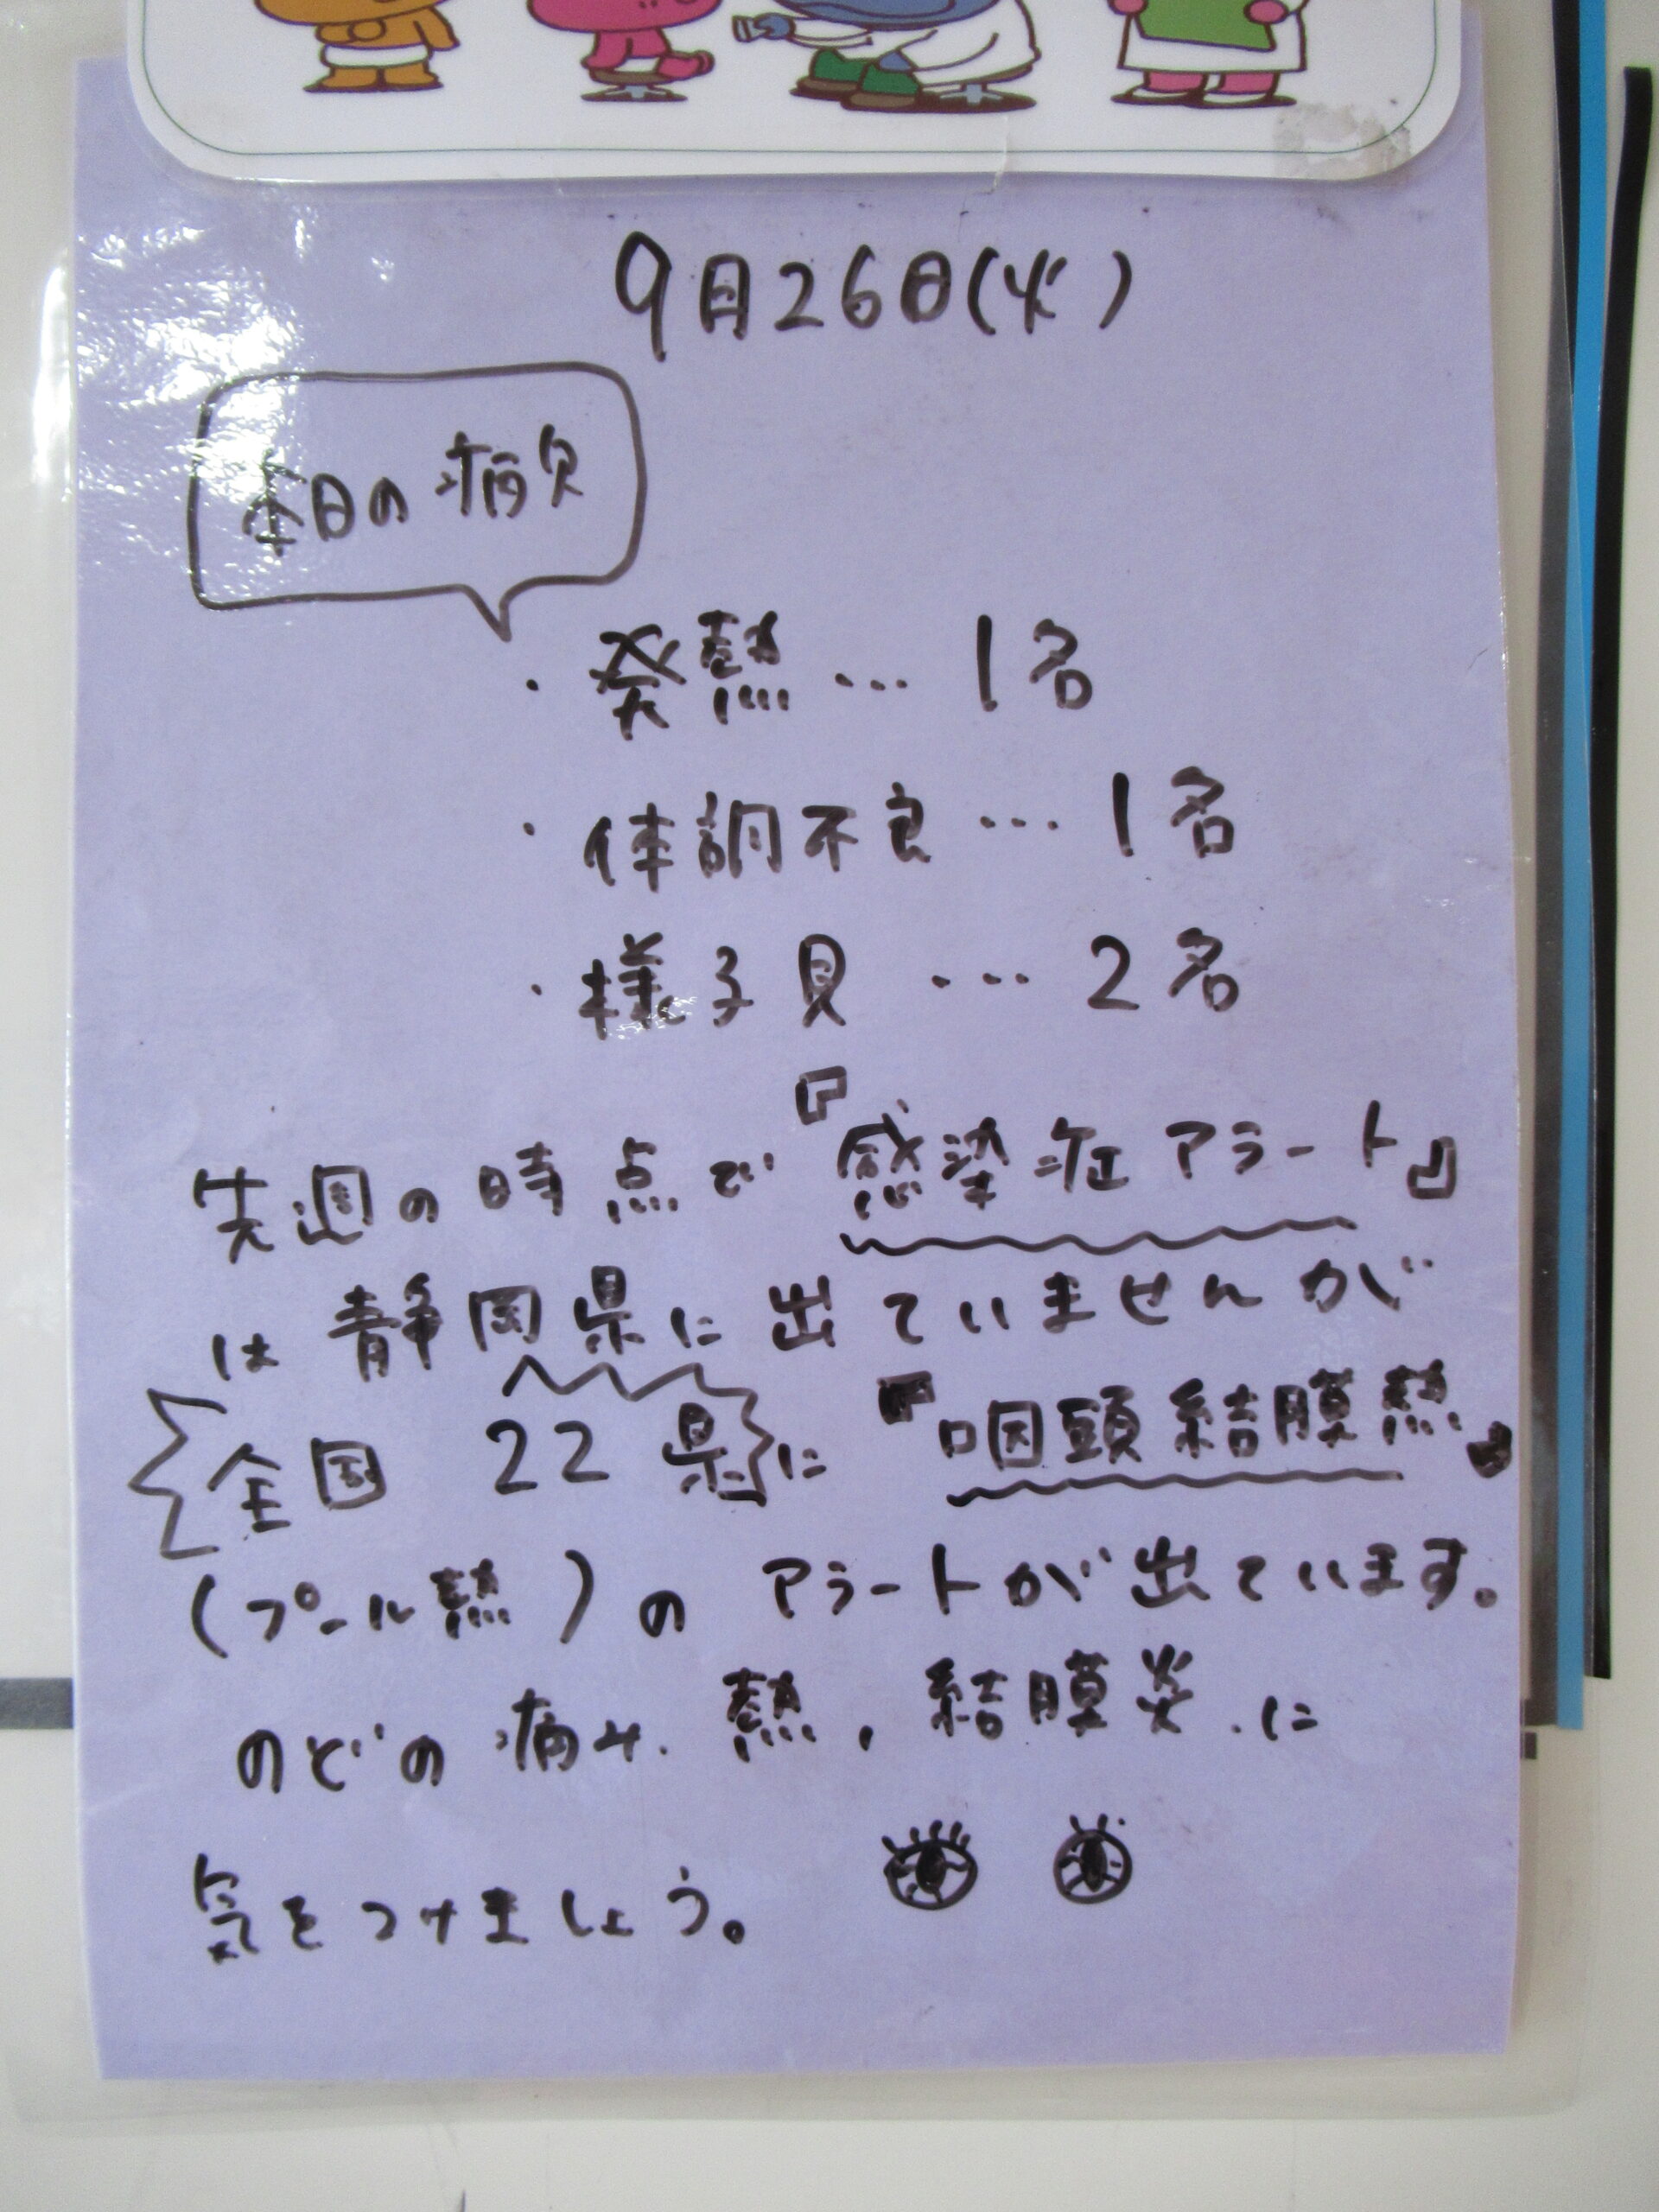 9月26日(火)
本日の病欠
・発熱…1名
・体調不良…1名
・様子見…2名
先週の時点で『感染症アラート』
は静岡県に出ていませんが
全国 22県に『咽頭結膜熱』
(プール熱)のアラートが出ています。
のどの痛み、熱、結膜炎、に
気をつけましょう。